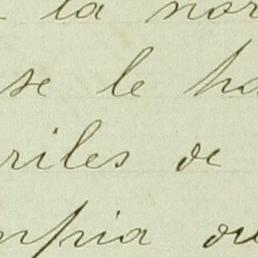 la nor
se le ha
riles de
mpia de